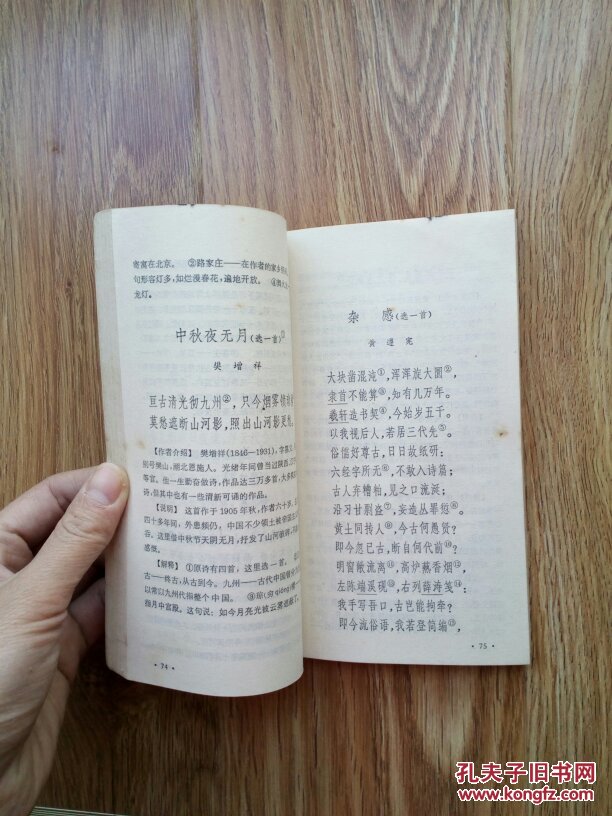 寄寓在北京。 ③路家庄——在作者的家乡
句形容灯多，如烂漫春花，遍地开放。 ④
龙灯。
中秋夜无月(选一首)①
樊增祥
亘古清光彻九州②，只今烟雾
莫愁遮断山河影，照出山河影更
【作者介绍】 樊增祥(1846—1931)，字
别号樊山，湖北恩施人。光绪年间曾当过陕西
等官。他一生勤奋做诗，作品达三万多首，大多
诗，但其中也有一些清新可诵的作品。
【说明】 这首作于1905年秋，作者六十岁。
四十多年间，外患频仍，中国不少领土被帝国
这里借中秋节天阴无月，抒发了山河破碎，
感慨。
【解释】 ①原诗有四首，这里选一首。
古——终古，从古到今。九州——古代中国曾分为
以常以九州代指整个中国。 ③琼(穷qióng)
指月中宫殿。这句说：如今月亮光被云雾遮蔽了
· 74 ·
杂 感(选一首)
黄遵宪
大块凿混沌①，浑浑旋大圜②，
隶首不能算③，知有几万年。
羲轩造书契④，今始岁五千。
以我视后人，若居三代先⑤。
俗儒好尊古，日日故纸研；
六经字所无⑥，不敢入诗篇；
古人弃糟粕，见之口流涎；
沿习甘剽盗⑦，妄造丛罪愆⑧。
黄土同抟人⑨，今古何愚贤？
即今忽已古，断自何代前⑩？
明窗敞流离，高炉爇香烟，
左陈端溪砚，右列薛涛笺；
我手写吾口，古岂能拘牵？
即今流俗语，我若登简编，
· 75 ·
孔夫子旧书网
www.kongfz.com